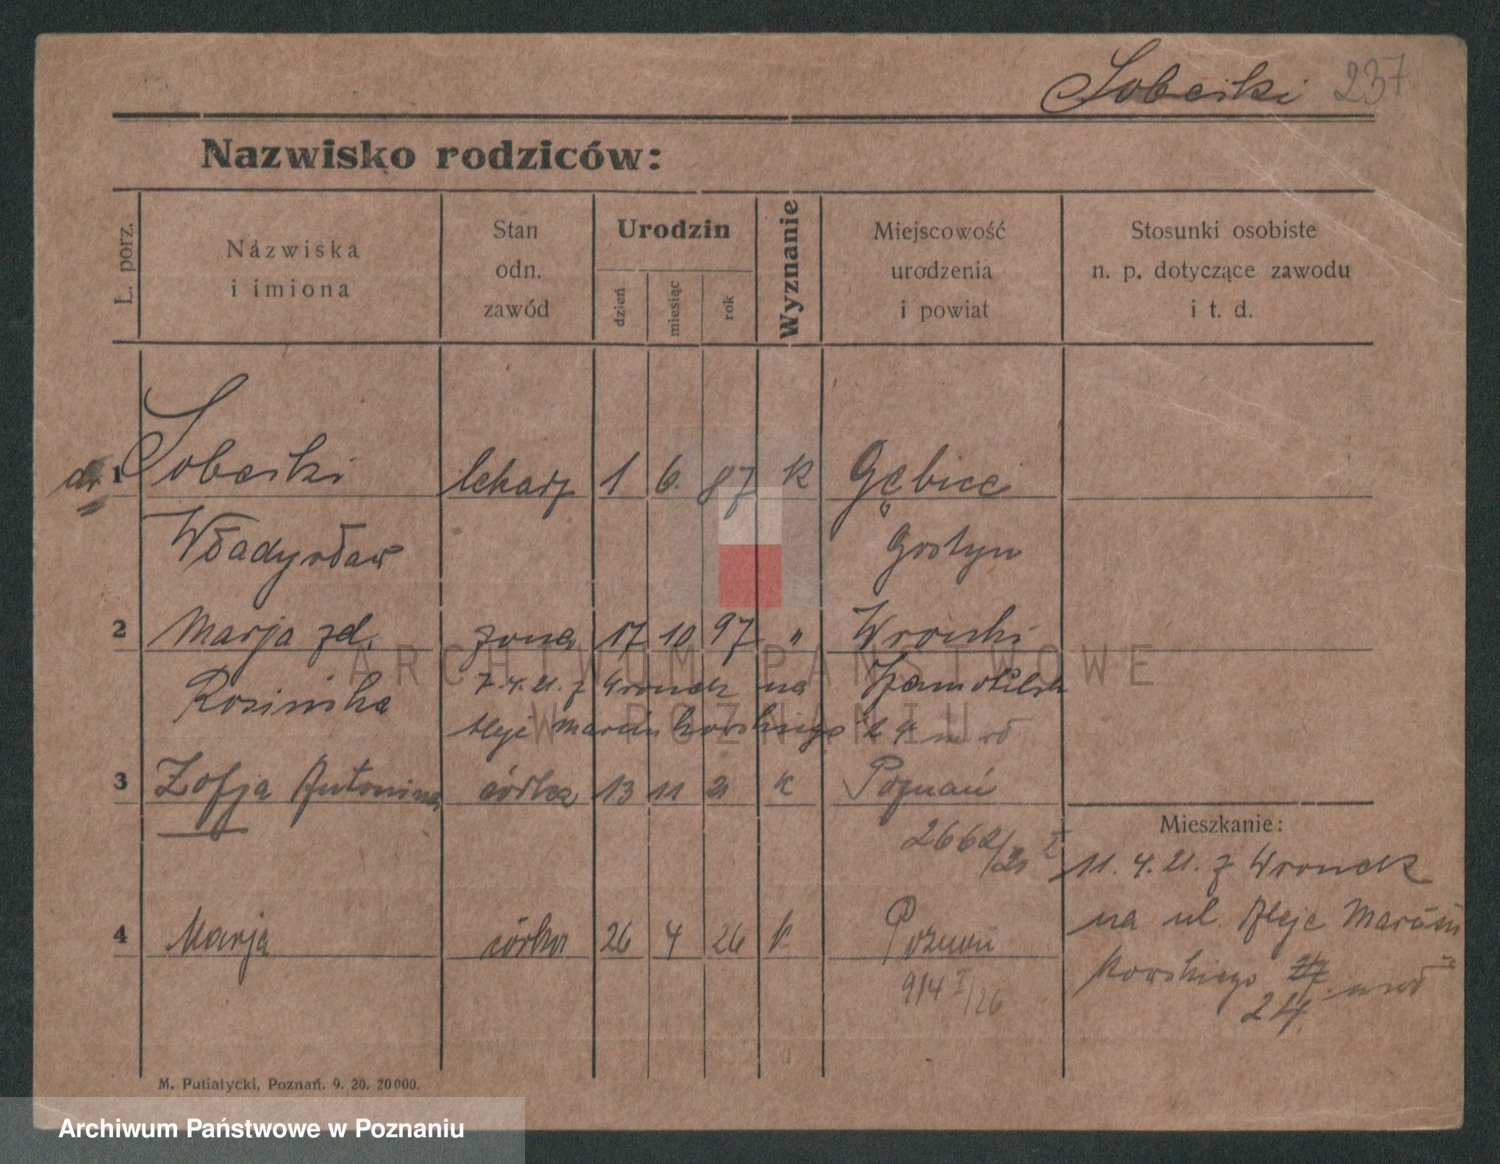 Sobeski 237
Nazwisko rodziców:
L. porz.
Nazwiska
i imiona
Stan
odn.
zawód
Urodzin
dzień
miesiąc
rok
Wyznanie
Miejscowość
urodzenia
i powiat
Stosunki osobiste
n. p. dotyczące zawodu
i t. d.
dr. 1 Sobeski lekarz 1 6. 87 k Gębice
Władysław Gostyn
2 Marja zd. żona 17 10 97 " Wronki
Rosińska 7.4.21. z Wronek na Szamotulsk
Aleje Marcinkowskiego 24
3 Zofja Antonina córka 13 11 21 k Poznań
2662/21 I
4 Marja córka 26 4 26 k Poznań
914 I/26
Mieszkanie:
11.4.21. z Wronek
na ul. Aleje Marcin
kowskiego 27
24.
M. Putiatycki, Poznań. 9. 20. 20000.
ARCHIWUM PAŃSTWOWE
W POZNANIU
Archiwum Państwowe w Poznaniu